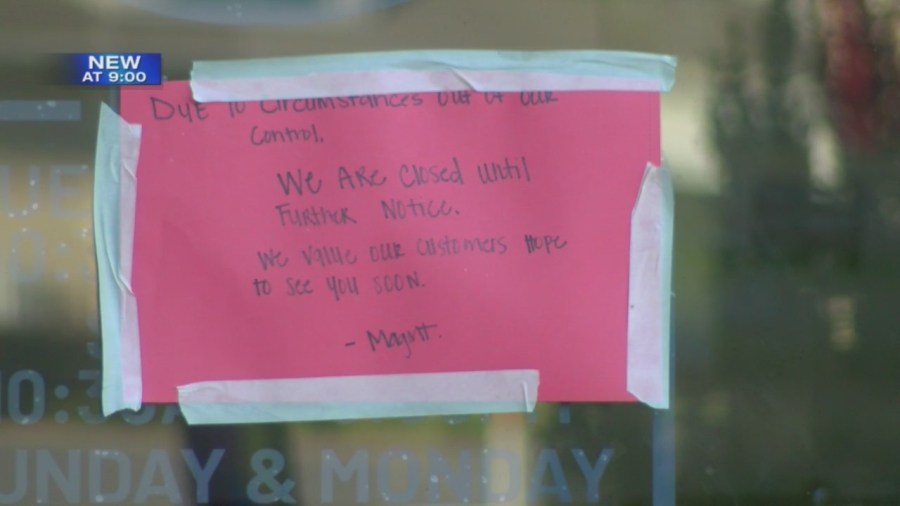 NEW
AT 9:00
DUE TO CIRCUMSTANCES OUT OF OUR
Control.
We ARe Closed until
Further Notice.
We value our customers Hope
to see you soon.
- Magmt.
UE
10:3
UNDAY & MONDAY